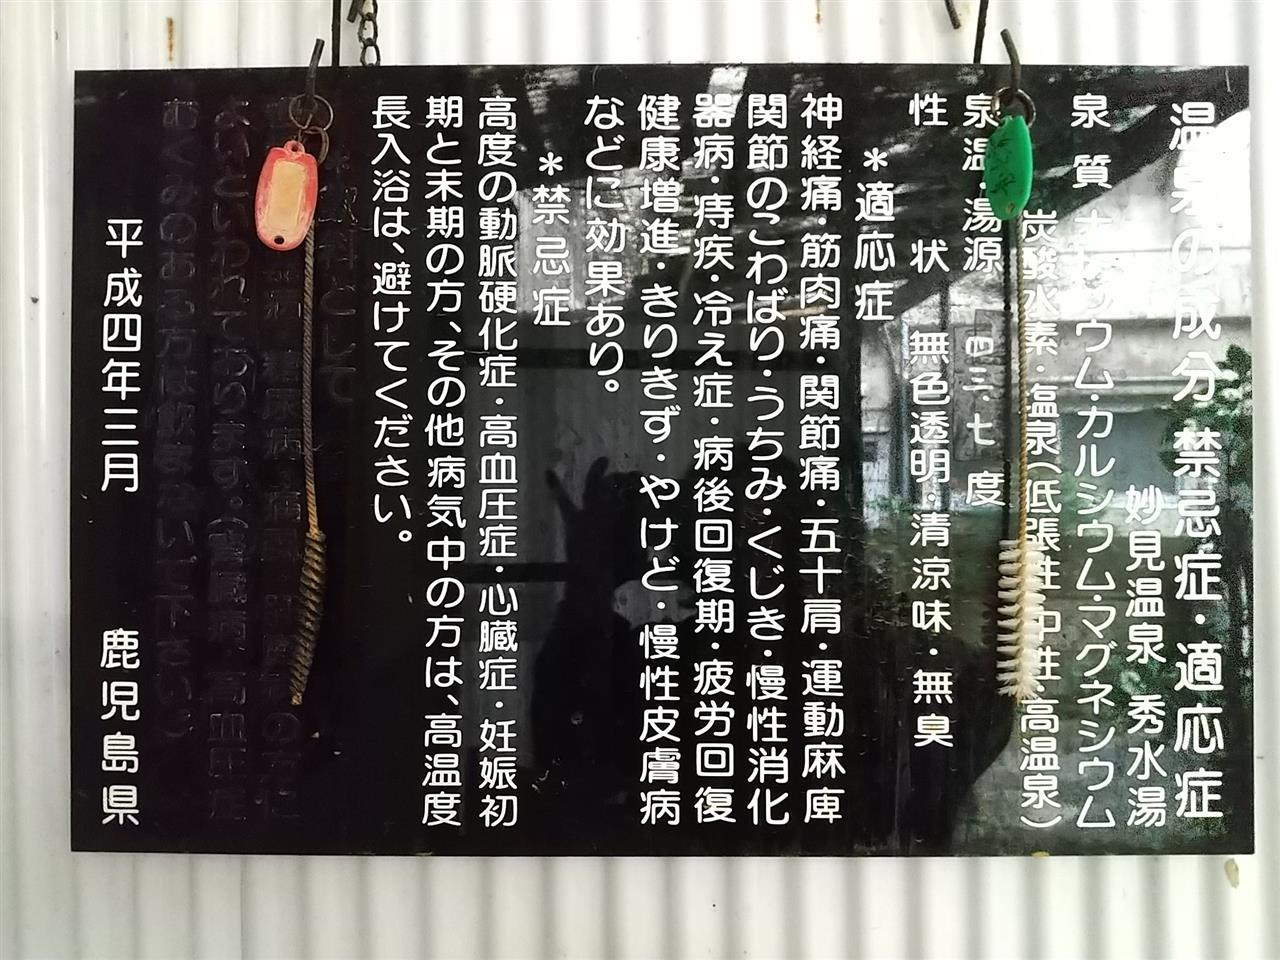 温泉の成分 禁忌症・適応症
妙見温泉 秀水湯
泉質 ナトリウム・カルシウム・マグネシウム
炭酸水素・塩泉(低張性・中性・高温泉)
泉温・湯源 四三・七度
性状 無色透明・清涼味・無臭
*適応症
神経痛・筋肉痛・関節痛・五十肩・運動麻痺
関節のこわばり・うちみ・くじき・慢性消化
器病・痔疾・冷え症・病後回復期・疲労回復
健康増進・きりきず・やけど・慢性皮膚病
などに効果あり。
*禁忌症
高度の動脈硬化症・高血圧症・心臓症・妊娠初
期と末期の方、その他病気中の方は、高温度
長入浴は、避けてください。
平成四年三月 鹿児島県